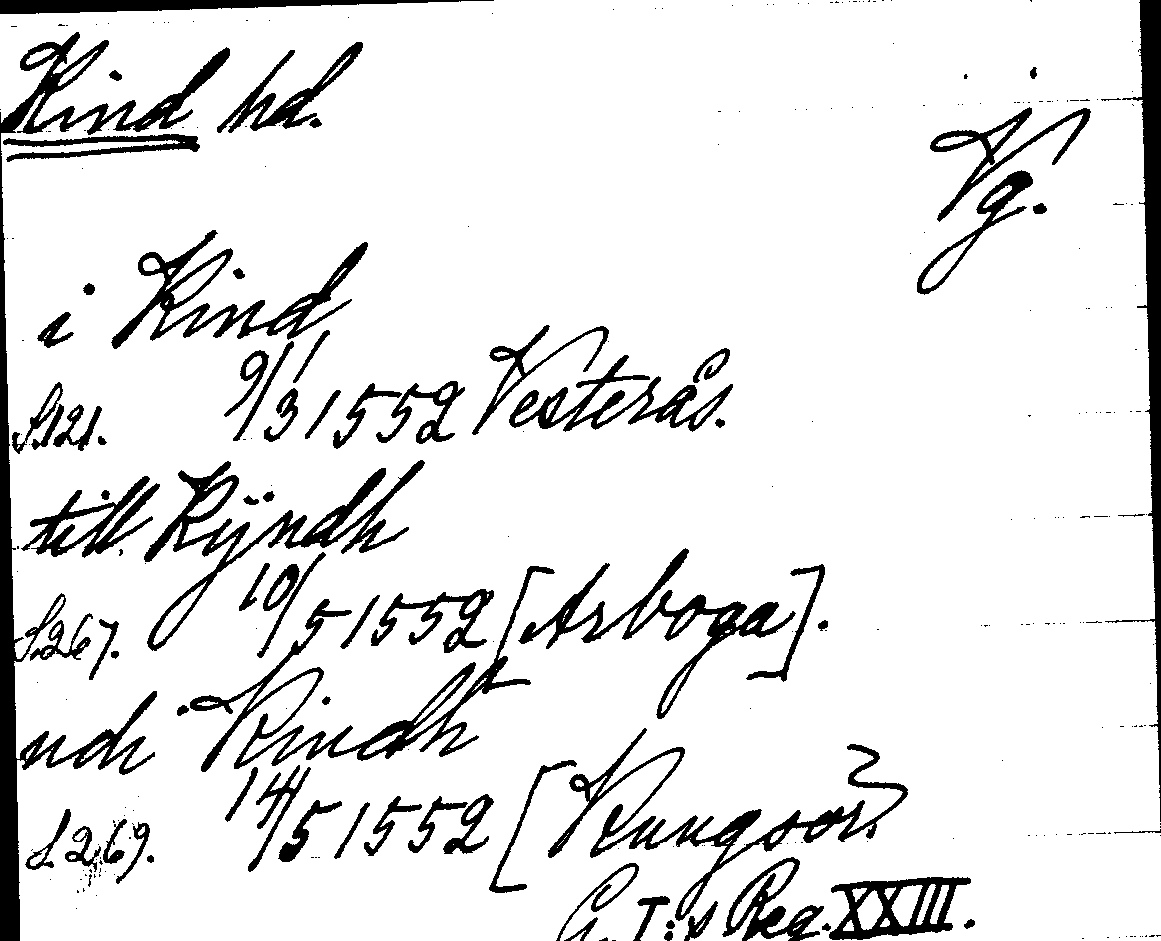 Kind hd.
Vg.
i Kind
S.121. 9/3 1552 Vesterås.
till Kÿndh
S.267. 10/5 1552 [Arboga].
udi Kindh
S.269. 14/5 1552 [Kungsör].
G. I:s Reg. XXIII.